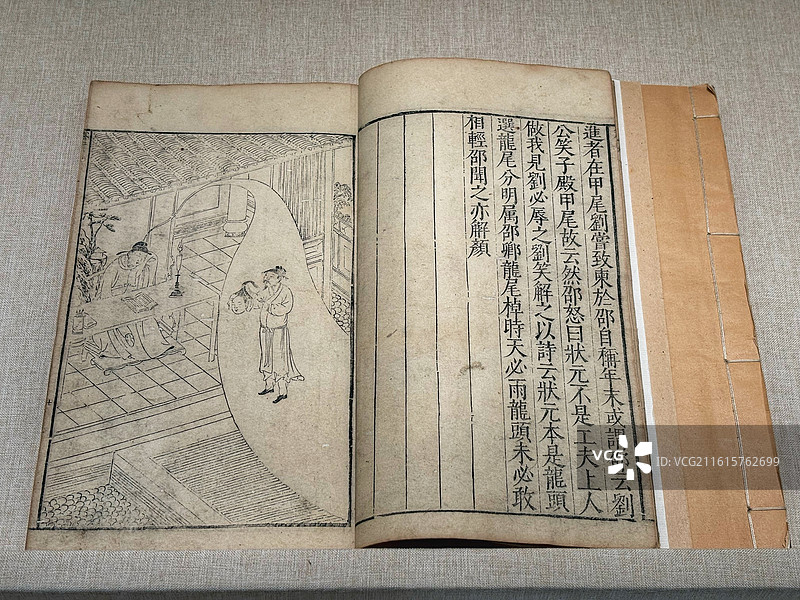 進者在甲尾劉嘗致柬於邵自稱年末或謂云劉
公笑子殿甲尾故云然邵怒曰狀元不是工夫上人
做我見劉必辱之劉笑解之以詩云狀元本是龍頭
選龍尾分明属邵鄉龍尾棹時天必雨龍頭未必敢
相輕邵聞之亦解顏
VCG
ID:VCG211615762699